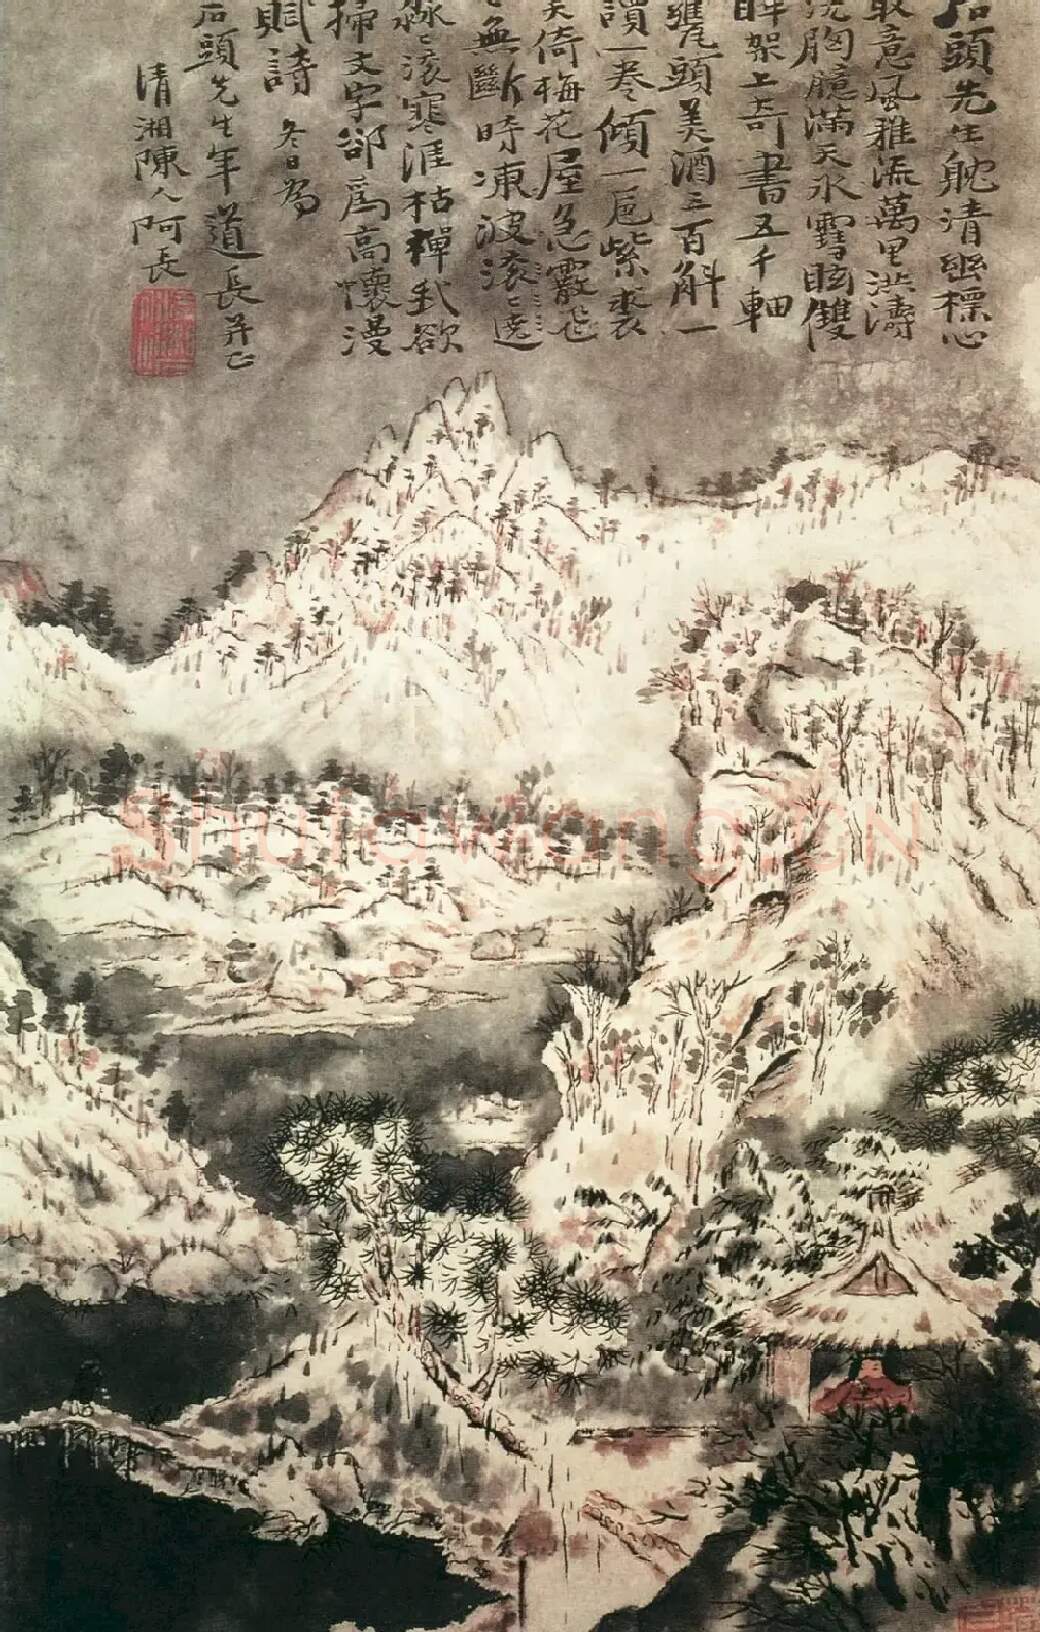 石頭先生耽清幽標心
取意風雅流萬里洪濤
洗胸臆滿天冰雪眩雙
眸架上奇書五千軸
甕頭美酒三百斛一
讀一卷傾一卮紫裘
笑倚梅花屋急霰飛
無斷時凍波滾滾遶
淼淼滾寒涯枯禪我欲
掃文字卻為高懷漫
賦詩 冬日為
石頭先生年道長并正
清湘陳人阿長
Shufawang.CN